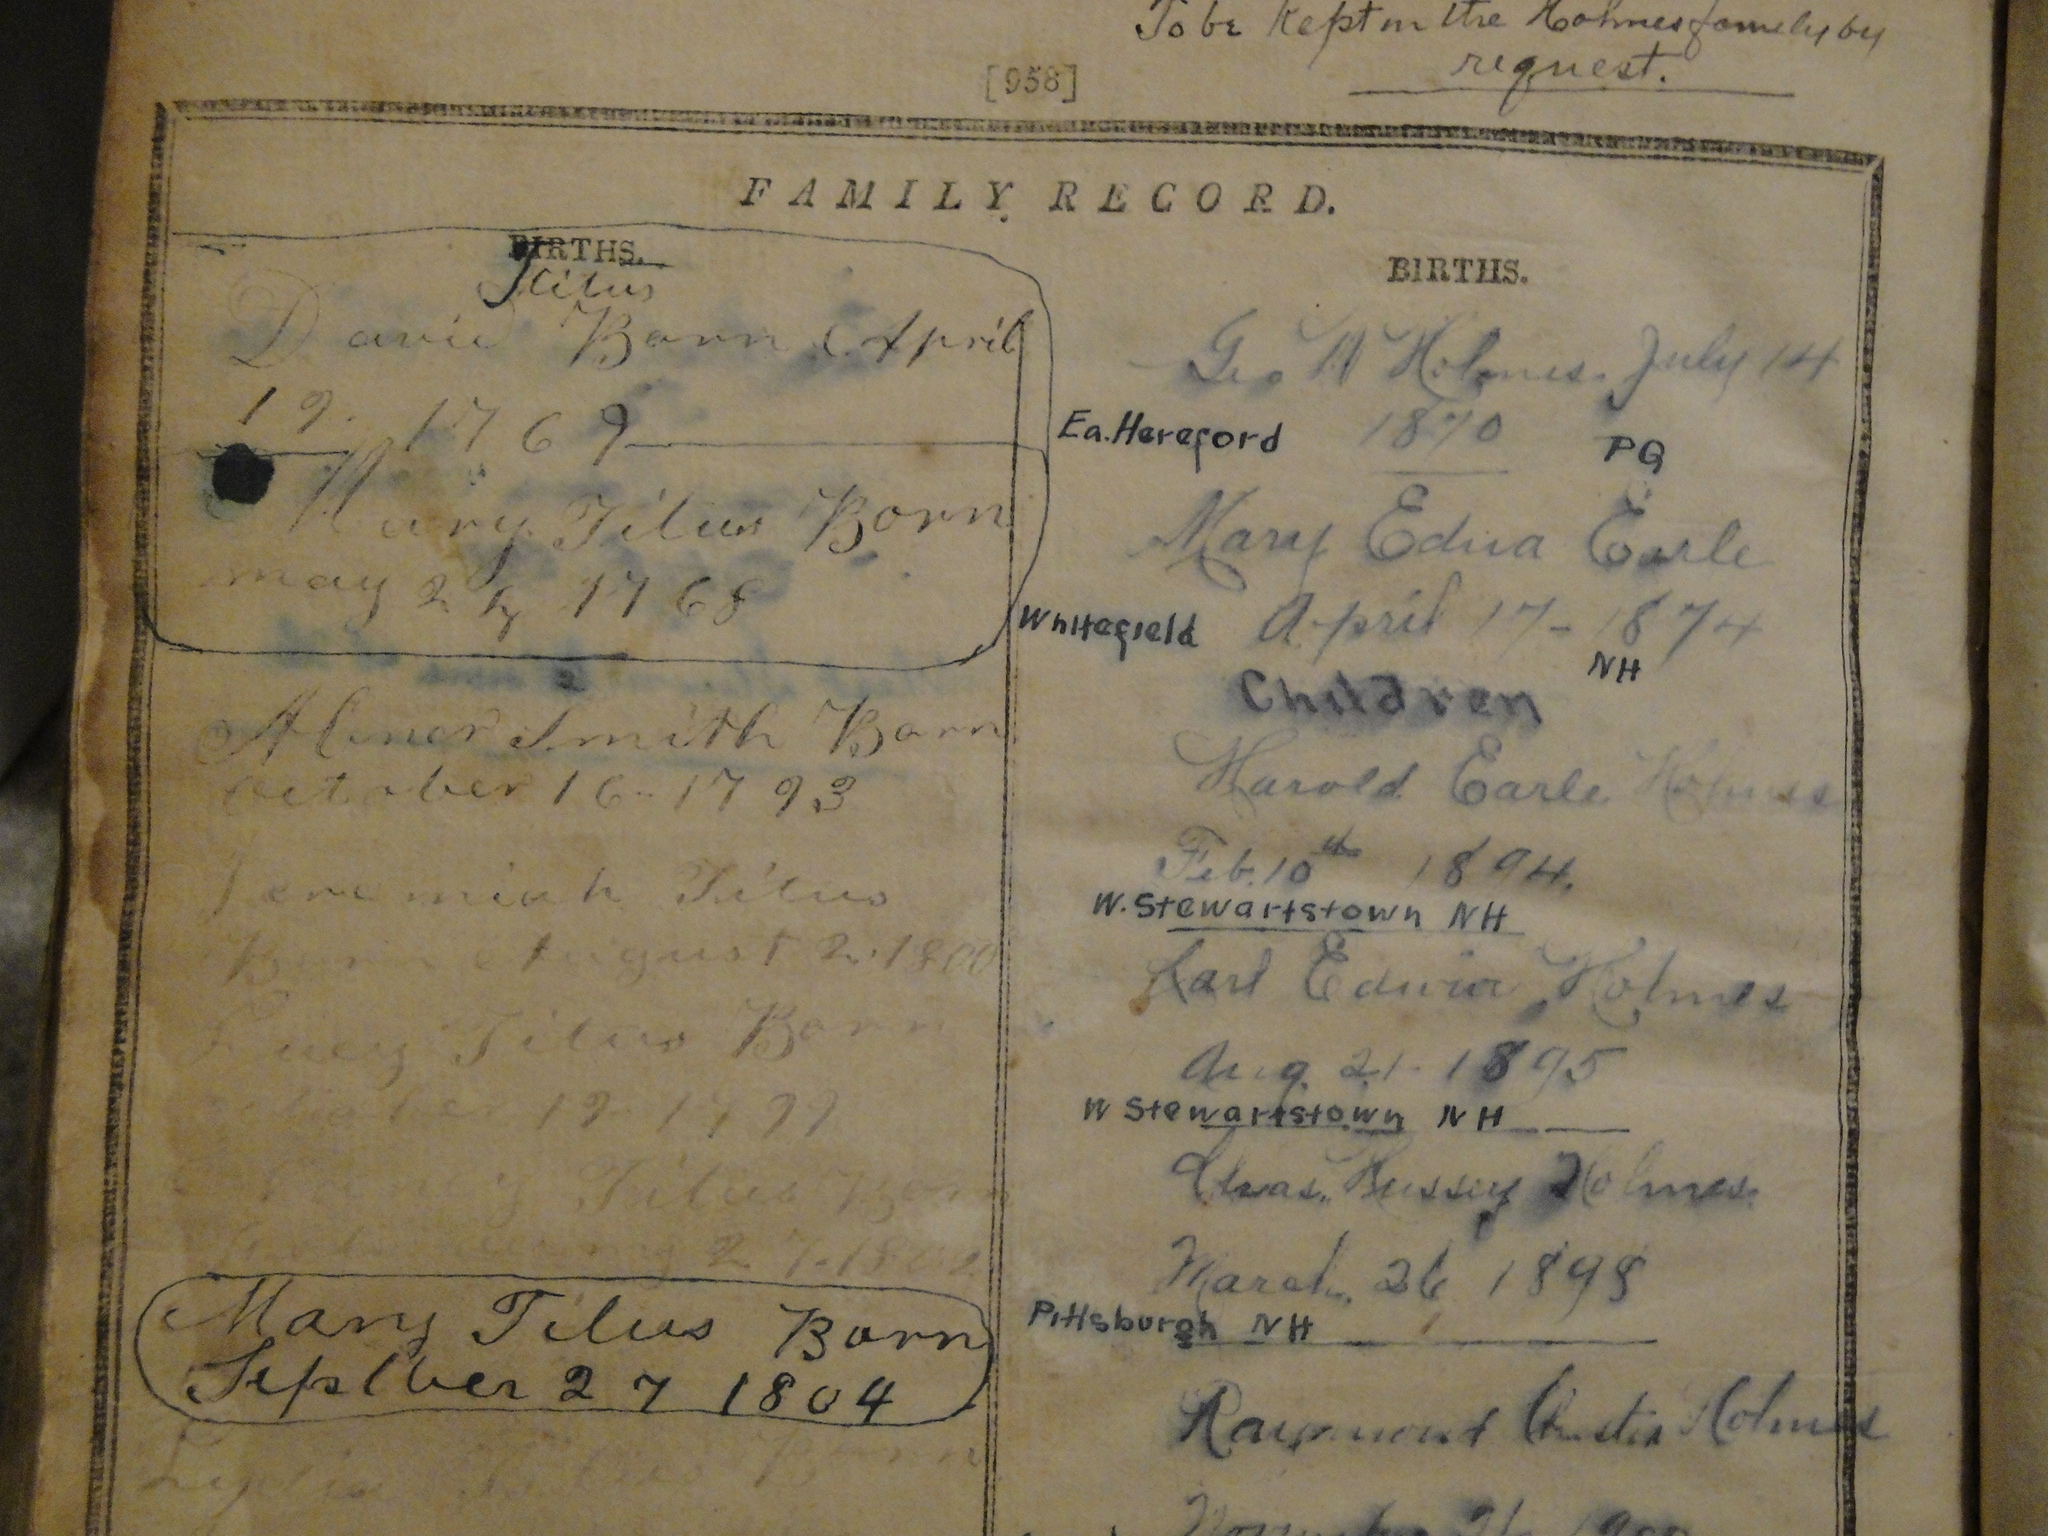 To be Kept in the Holmes family by
request.
[958]
FAMILY RECORD.
BIRTHS.
Titus
David Born April
19. 1769
Mary Titus Born
may 1768
Abner Smith Born
october 16-1793
Jeremiah Titus
Born August 2.1800
Lucy Titus Born
19
Titus Born
27.
Mary Titus Born
Septber 27 1804
Lydia Titus Born
BIRTHS.
Geo H Holmes. July 14
Ea.Hereford 1870 PQ
Mary Edna Earle
Whitefield April 17-1874
NH
Children
Harold Earle Holmes
Feb.10th 1894.
W.Stewartstown NH
Carl Edwin Holmes
Aug. 21. 1895
W Stewartstown NH
Chas. Hussey Holmes.
March. 26 1898
Pittsburgh NH
Raymond Holmes